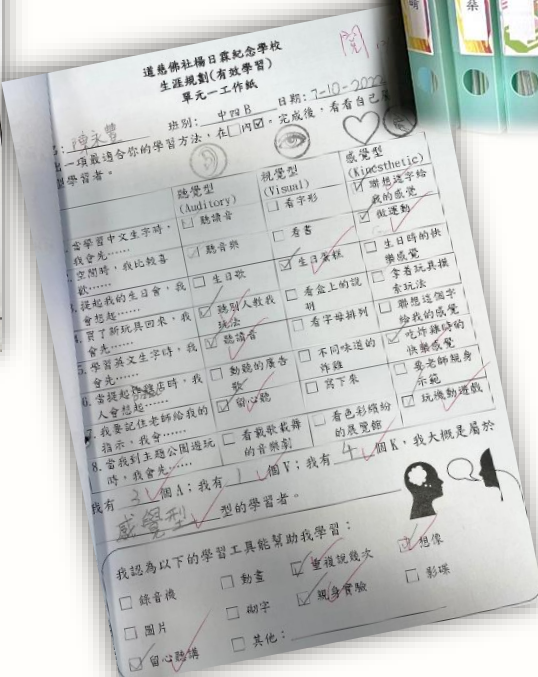 閱
道慈佛社楊日霖紀念學校
生涯規劃(有效學習)
單元一工作紙
陳永豐 班別: 中四B 日期: 7-10-2022
出一項最適合你的學習方法,在□內☑。完成後,看看自己
學習者。
聽覺型 (Auditory) 視覺型 (Visual) 感覺型 (Kinesthetic)
當學習中文生字時,我會先…… □ 聽讀音 □ 看字形 ☑ 聯想這字給我的感覺
空閒時,我比較喜歡…… □ 聽音樂 □ 看書 ☑ 做運動
提起我的生日會,我會想起…… □ 生日歌 ☑ 生日蛋糕 □ 生日時的快樂感覺
4. 買了新玩具回來,我會先…… ☑ 聽別人教我玩法 □ 看盒上的說明 □ 拿着玩具摸索玩法
5. 學習英文生字時,我會先…… ☑ 聽讀音 □ 看字母排列 □ 聯想這個字給我的感覺
6. 當提起炸雞店時,我會想起…… □ 動聽的廣告歌 □ 不同味道的炸雞 ☑ 吃炸雞時的快樂感覺
7. 我要記住老師給我的指示,我會…… ☑ 留心聽 □ 寫下來 □ 要老師親身示範
8. 當我到主題公園遊玩時,我會先…… □ 看載歌載舞的音樂劇 □ 看色彩繽紛的展覽館 ☑ 玩機動遊戲
我有 3 個A;我有 1 個V;我有 4 個K,我大概是屬於
感覺型 型的學習者。
我認為以下的學習工具能幫助我學習:
□ 錄音機 □ 動畫 ☑ 重複說幾次 ☑ 想像
□ 圖片 □ 砌字 ☑ 親身實驗 □ 影碟
☑ 留心聽講 □ 其他: